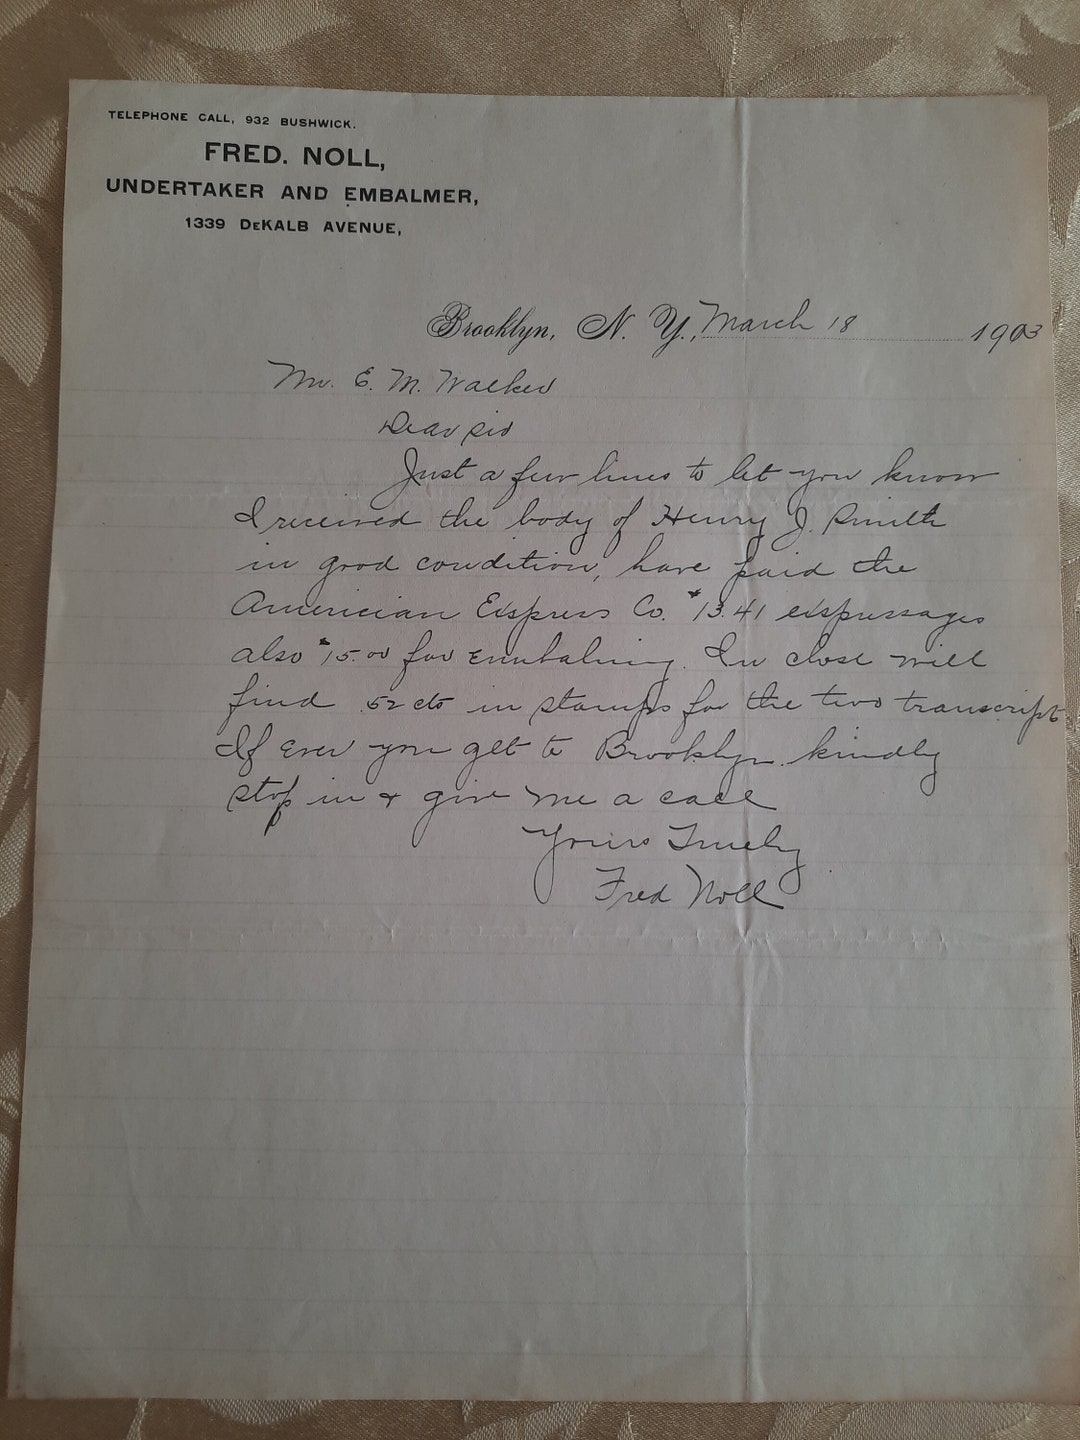 TELEPHONE CALL, 932 BUSHWICK.
FRED. NOLL,
UNDERTAKER AND EMBALMER,
1339 DEKALB AVENUE,
Brooklyn, N. Y., March 18 1903
Mr. E. M. Walker
Dear Sir
Just a few lines to let you know
I received the body of Henry J. Smith
in good condition, have paid the
Americian Express Co. $13.41 expressages
also $15.00 for Embalming. In close will
find .52 cts in stamps for the two transcript
If ever you get to Brooklyn kindly
stop in & give me a call
Yours Truely
Fred Noll